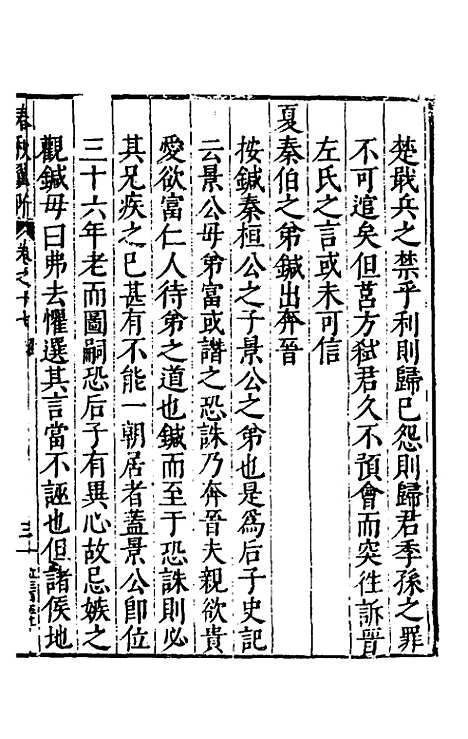 楚戢兵之禁乎利則歸已怨則歸君季孫之罪
不可逭矣但莒方弑君久不預會而突徃訴晉
左氏之言或未可信
夏秦伯之弟鍼出奔晉
按鍼秦桓公之子景公之弟也是爲后子史記
云景公母弟富或譖之恐誅乃奔晉夫親欲貴
愛欲富仁人待弟之道也鍼而至于恐誅則必
其兄疾之已甚有不能一朝居者蓋景公卽位
三十六年老而圖嗣恐后子有異心故忌嫉之
觀鍼母曰弗去懼選其言當不誣也但諸侯地
春秋翼附 卷之十七